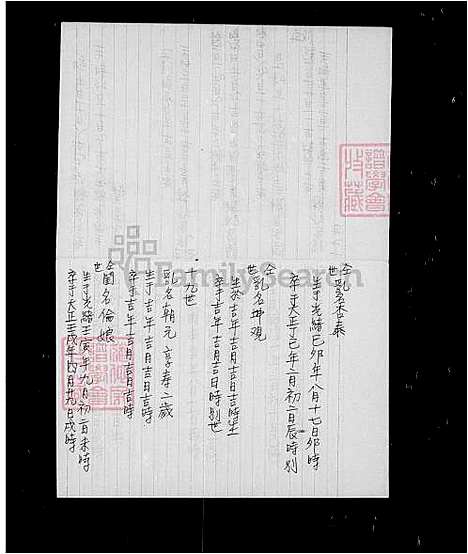 仝世乳名杏泰
生于光緒己卯年八月十七日卯時
卒于大正丁巳年二月初二日辰時別
仝世乳名坤观
生於吉年吉月吉日吉時生
卒于吉年吉月吉日時別世
十九世
乳名朝元 享春二歲
生于吉年吉月吉日吉時
卒于吉年吉月吉日吉時
仝世閨名倫娘
生于光緒壬寅年九月初一日未時
卒于大正壬戌年四月廿九日戌時
FamilySearch
譜學會
收藏